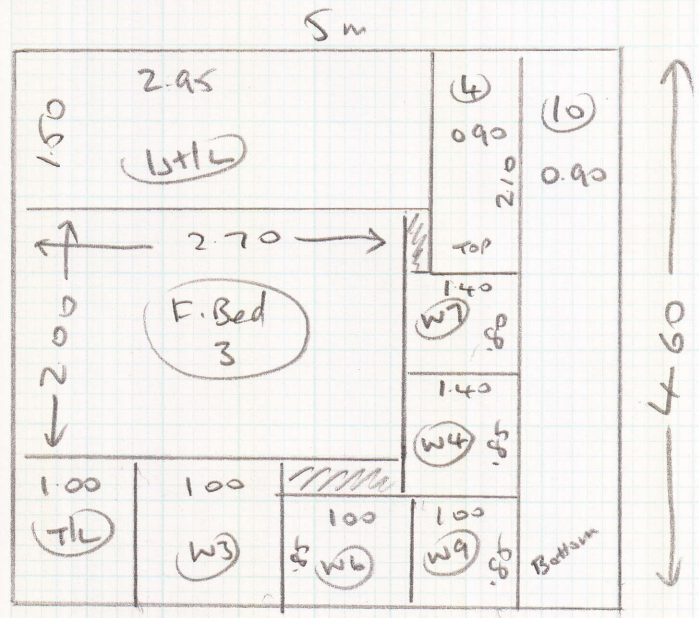 5 m
2.95
1.50
4
0.90
2.10
TOP
10
0.90
2.70
2.00
F.Bed
3
1.40
W7
.80
1.40
W4
4 60
1.00
T/L
100
W3
100
W6
100
W9
Bottom